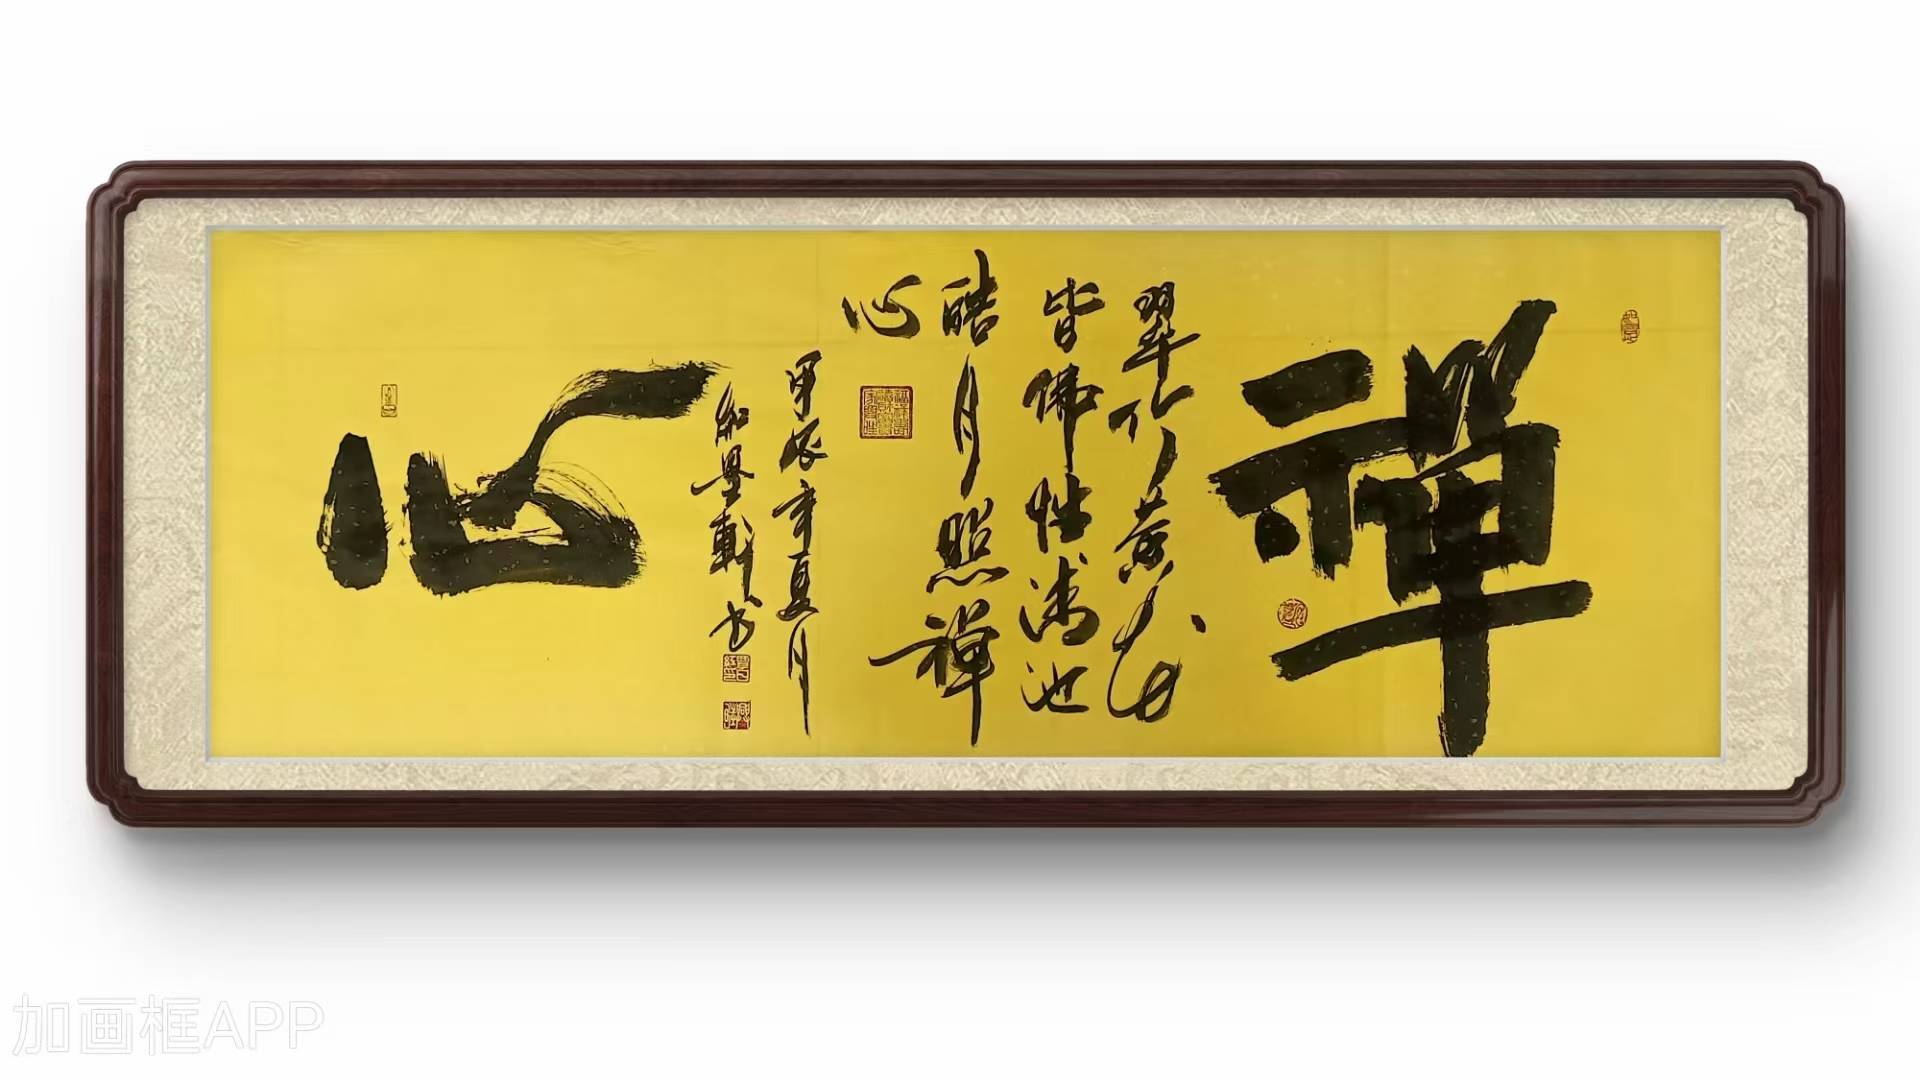 禅
翠竹黄花
皆佛性满池
皓月照禅
心
甲辰年夏月
书
心
加画框APP